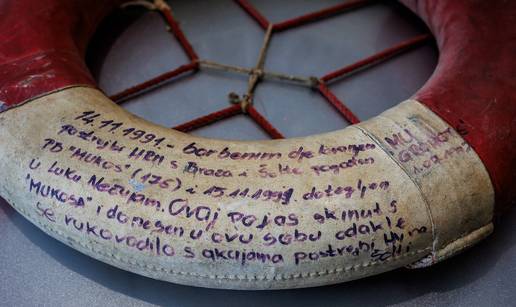 14.11.1991. - borbenim djelovanjem
postrojbi HRM s Brača i Šolte pogođen
PB "MUKOS" (176) i 15.11.1991. dotegljen
u luku Nečujam. Ovaj pojas skinut s
"MUKOSA" i donesen u ovu sobu odakle
se rukovodilo s akcijama postrojbi HV na
Šolti
MU
GROHOTE